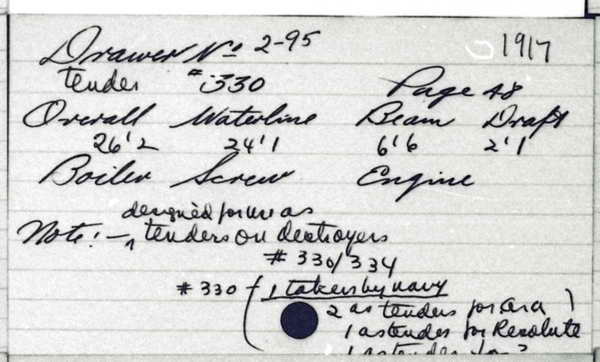 Drawer No 2-95 1917
tender #330 Page 48
Overall Waterline Beam Draft
26'2 24'1 6'6 2'1
Boiler Screw Engine
designed for use as
Note: - tenders on destroyers
#330/334
#330 - ( 1 taken by navy
2 as tenders for )
1 as tender for Resolute
1 as tender for ?